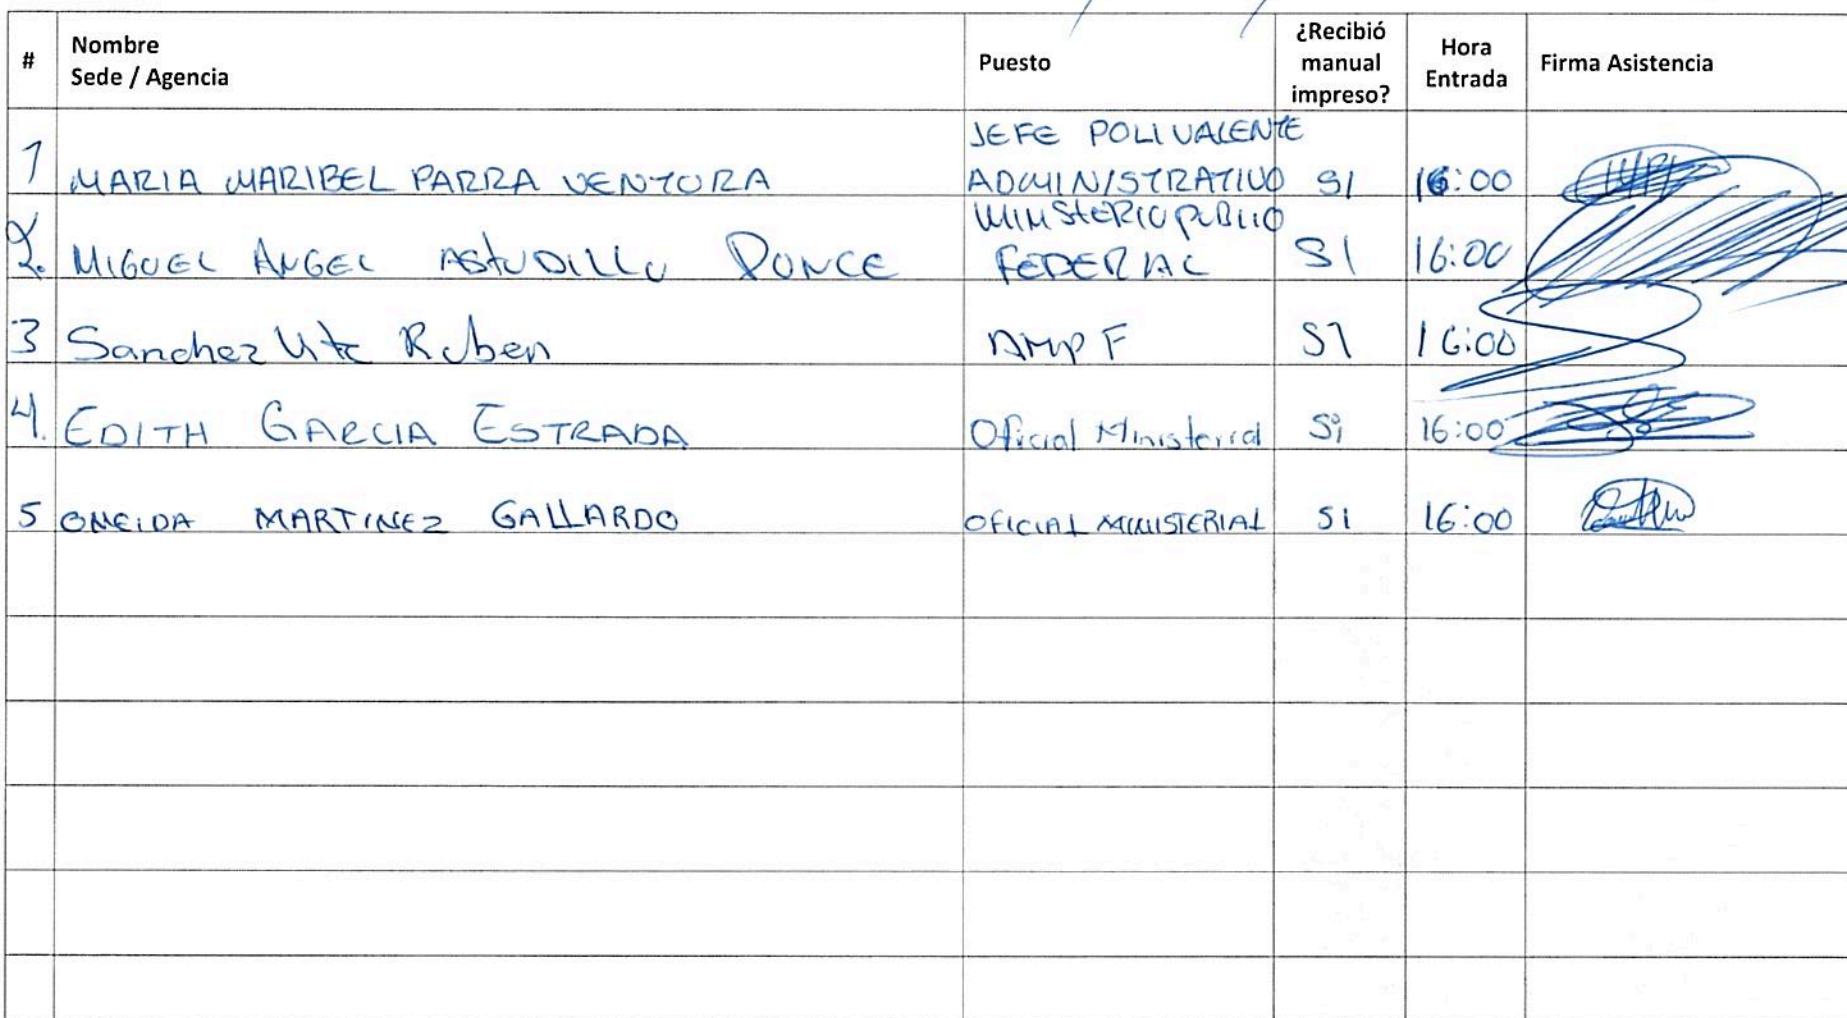 # Nombre Sede / Agencia Puesto ¿Recibió manual impreso? Hora Entrada Firma Asistencia
1 MARIA MARIBEL PARRA VENTURA JEFE POLIVALENTE ADMINISTRATIVO SI 16:00
2. MIGUEL ANGEL ASTUDILLO PONCE MINISTERIO PUBLIO FEDERAL SI 16:00
3 Sanchez Ruben AMPF SI 16:00
4. EDITH GARCIA ESTRADA Oficial Ministerial Si 16:00
5 ONEIDA MARTINEZ GALLARDO OFICIAL MINISTERIAL SI 16:00